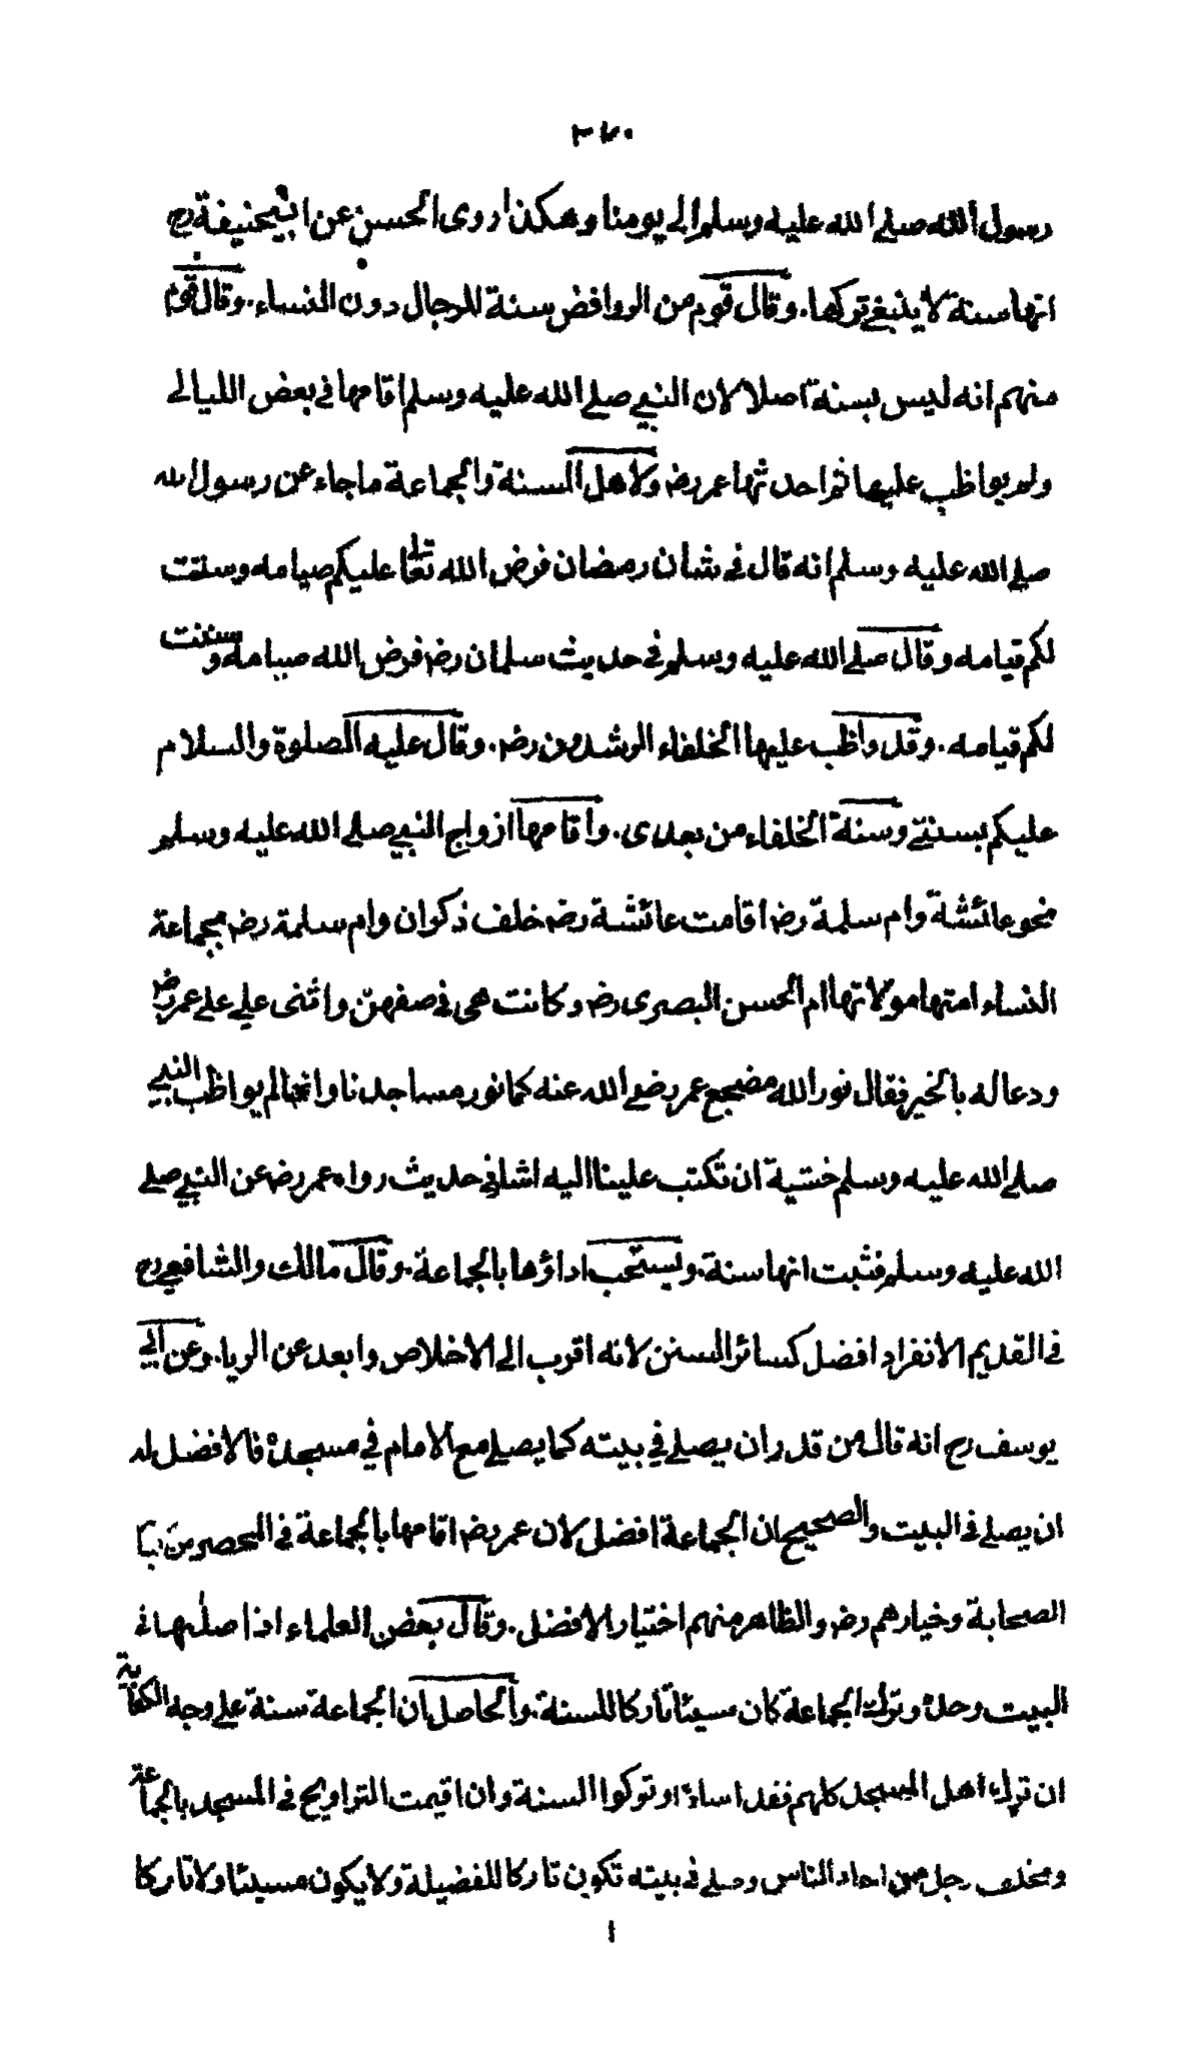 ٣٧٠
رسول الله صلى الله عليه وسلم الى يومنا وهكذا روى الحسن عن ابيحنيفة رح
انها سنة لا ينبغى تركها. وقال قوم من الروافض سنة للرجال دون النساء. وقال قوم
منهم انه ليس بسنة اصلا لان النبى صلى الله عليه وسلم اقامها فى بعض الليالى
ولم يواظب عليها ثم احدثها عمر رضه ولاهل السنة والجماعة ماجاء عن رسول الله
صلى الله عليه وسلم انه قال فى شان رمضان فرض الله تعالى عليكم صيامه وسننت
لكم قيامه وقال صلى الله عليه وسلم فى حديث سلمان رضه فرض الله صيامه وسننت
لكم قيامه. وقد واظب عليها الخلفاء الرشدون رضه. وقال عليه الصلوة والسلام
عليكم بسنتى وسنة الخلفاء من بعدى. واقامها ازواج النبى صلى الله عليه وسلم
نحو عائشة وام سلمة رضه اقامت عائشة رضه خلف ذكوان وام سلمة رضه بجماعة
النساء امتها مولاتها ام الحسن البصرى رضه وكانت هى فى صفهن واثنى على على عمر رض
ودعا له بالخير فقال نور الله مضجع عمر رضى الله عنه كما نور مساجدنا وانما لم يواظب النبى
صلى الله عليه وسلم خشية ان تكتب علينا اليه اشار فى حديث رواه عمر رضه عن النبى صلى
الله عليه وسلم فثبت انها سنة. ويستحب اداؤها بالجماعة. وقال مالك والشافعى رح
فى القديم الانفراد افضل كسائر السنن لانه اقرب الى الاخلاص وابعد عن الريا. وعن ابى
يوسف رح انه قال من قدر ان يصلى فى بيته كما يصلى مع الامام فى مسجده فالافضل له
ان يصلى فى البيت والصحيح ان الجماعة افضل لان عمر رضه اقامها بالجماعة فى المحصر من
الصحابة وخيارهم رضه والظاهر منهم اختيار الافضل. وقال بعض العلماء اذا صلها فى
البيت وحده وترك الجماعة كان مسيئا تاركا للسنة. والحاصل ان الجماعة سنة على وجه الكفاية
ان ترك اهل المسجد كلهم فقد اساءوا وتركوا السنة وان اقيمت التراويح فى المسجد بالجماعة
وتخلف رجل من احاد الناس وصلى فى بيته تكون تاركا للفضيلة ولا يكون مسيئا ولا تاركا
ا